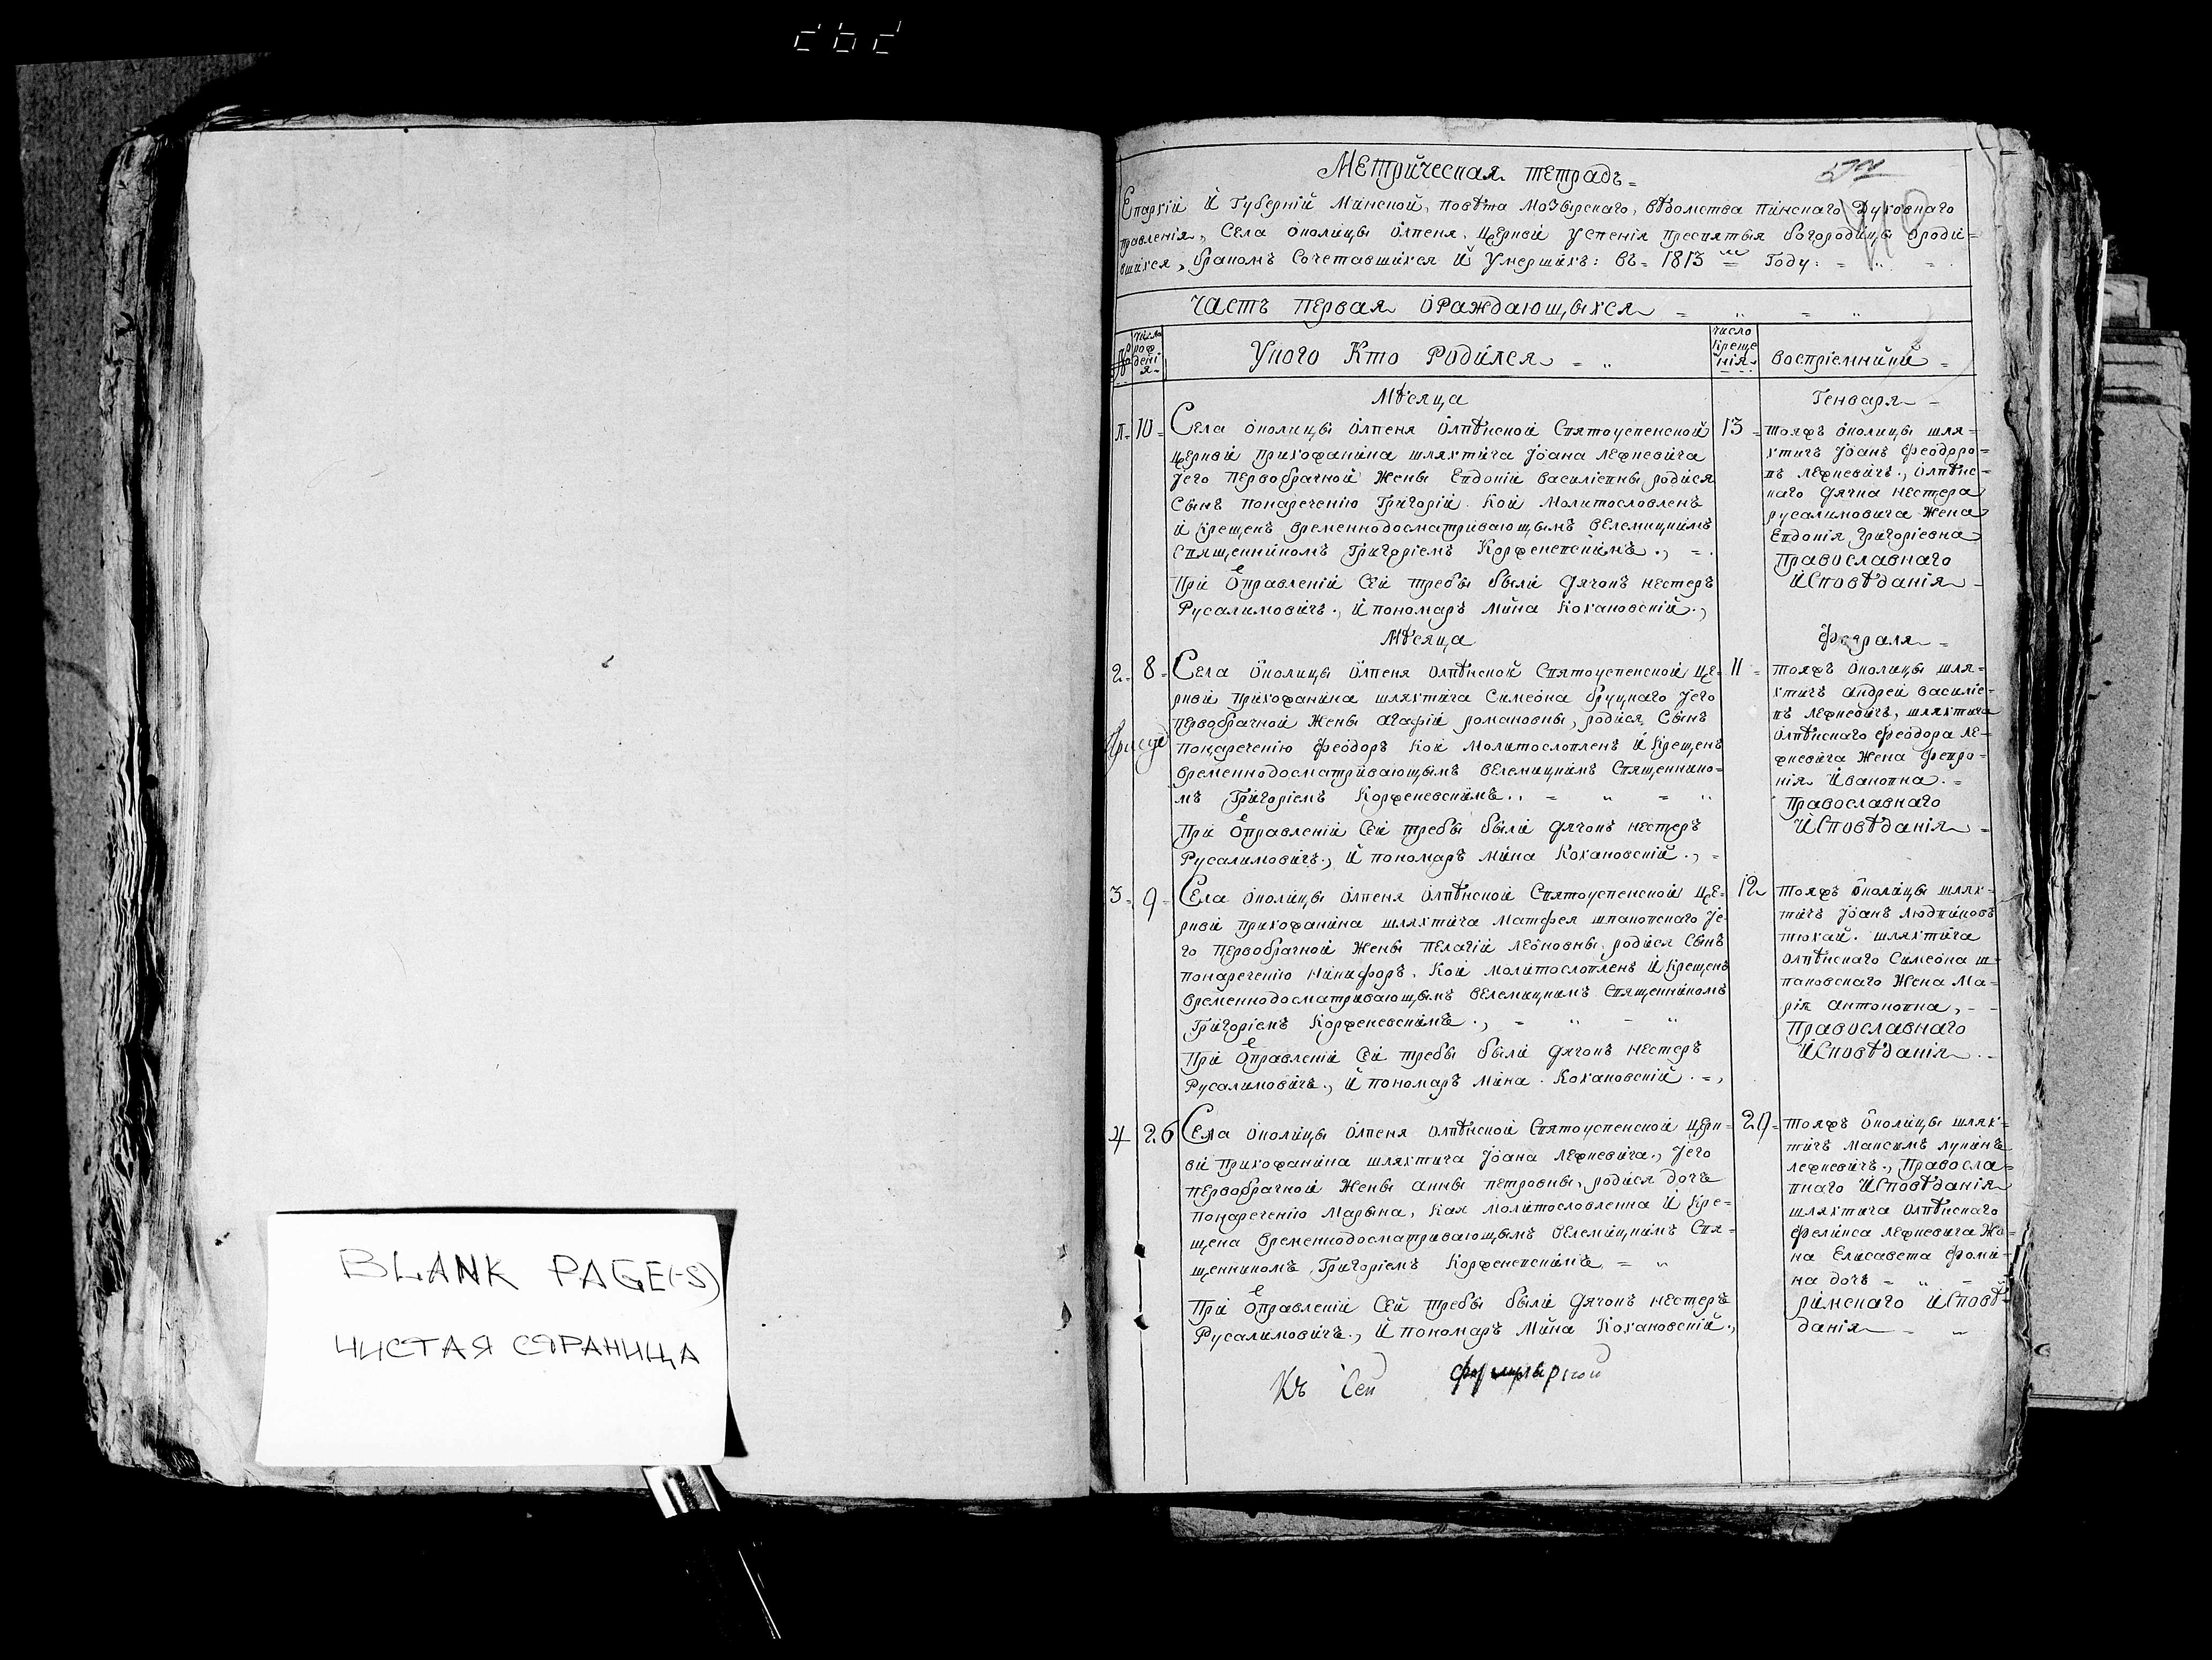 BLANK PAGE(-S)
ЧИСТАЯ СТРАНИЦА
Метрическая тетрадь
Епархіи и Губерніи Минской, повѣта Мозырскаго, вѣдомства пинскаго Духовнаго
правленія, Села ополицы олпеня. церкви успенія пресвятыя богородицы ороди=
вшихся, бракомъ Сочетавшихся и умершихъ: въ 1813 м Году:
Часть первая ораждающихся
№ числа рождения
Укого Кто родился
число крещенія
воспріемники
Мѣсяца Генваря
1. 10 Села ополицы олпеня олпѣнской Святоуспенской
церкви прихожанина шляхтича Іоана лефневича
Іего первобрачной жены Евдокіи василіевны родися
Сынъ понареченію Григорій. кой молитвословленъ
и крещенъ временнодосматривающымъ велемицкимъ
Священникомъ Григоріемъ
При оправленіи сей требы были дячокъ нестеръ
Русалимовичъ., и пономаръ Мина Кохановскій.,
13
тояжъ ополицы шля=
хтичъ Іоанъ феодоро=
въ лефневичъ., олпѣнс=
каго дячка нестера
русалимовича жена
Евдокія Григоріевна
православнаго
исповѣданія
Мѣсяца Февраля
2. 8 Села ополицы олпеня олпѣнской Святоуспенской це=
ркви прихожанина шляхтича Симеона бруцкаго Іего
первобрачной жены агафіи романовны, родися Сынъ
понареченію феодоръ кой молитвословленъ и крещенъ
временнодосматривающымъ велемицкимъ Священнико=
мъ Григоріемъ
При оправленіи сей требы были дячокъ нестеръ
Русалимовичъ., и пономаръ Мина Кохановскій.,
11
тояжъ ополицы шля=
хтичъ андрей василіе=
въ лефневичъ, шляхтича
олпѣнскаго феодора ле=
фневича жена февро=
нія Ивановна.
православнаго
исповѣданія
3. 9 Села ополицы олпеня олпѣнской Святоуспенской це=
ркви прихожанина шляхтича Матфея шпаковскаго Іе=
го первобрачной жены пелагіи леоновны родися Сынъ
понареченію никифоръ. кой молитвословленъ и крещенъ
временнодосматривающымъ велемицкимъ Священникомъ
Григоріемъ
При оправленіи сей требы были дячокъ нестеръ
Русалимовичъ., и пономаръ Мина Кохановскій.
12
тояжъ ополицы шлях=
тичъ Іоанъ
шляхтича
олпѣнскаго Симеона ш=
паковскаго жена Ма=
рія антоновна,
православнаго
исповѣданія
4 26 Села ополицы олпеня олпѣнской Святоуспенской церк=
ви прихожанина шляхтича Іоана лефневича., Іего
первобрачной жены анны петровны, родися дочь
понареченію Марьяна, кая молитвословленна и кре=
щена временнодосматривающымъ велемицкимъ Свя=
щенникомъ Григоріемъ
При оправленіи сей требы были дячокъ нестеръ
Русалимовичъ., и пономаръ Мина Кохановскій.,
29
тояжъ ополицы шлях=
тичъ Максимъ лукинъ
лефневичъ., правосла=
внаго исповѣданія
шляхтича олпѣнскаго
феликса лефневича же=
на Елисавета фоми=
на дочь
римскаго исповѣ=
данія
Къ Сей